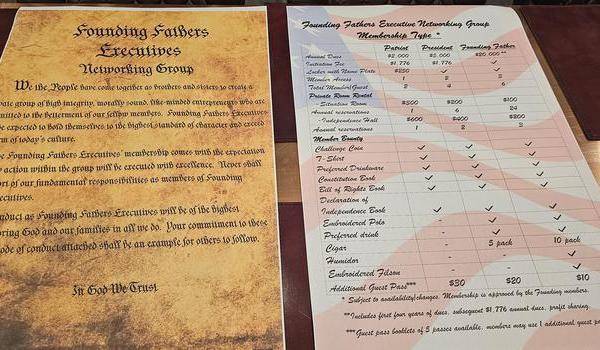 Founding Fathers
Executives
Networking Group
We the People have come together as brothers and sisters to create a
group of high integrity, morally sound, like-minded entrepreneurs who are
to the betterment of our fellow members. Founding Fathers Executives
be expected to hold themselves to the highest standard of character and exceed
of today's culture.
Founding Fathers Executives' membership comes with the expectation
action within the group will be executed with excellence. Never shall
of our fundamental responsibilities as members of Founding
as Founding Fathers Executives will be of the highest
God and our families in all we do. Your commitment to these
code of conduct attached shall be an example for others to follow.
In God We Trust
Founding Fathers Executive Networking Group
Membership Type *
Patriot President Founding Father
Annual Dues $2,000 $5,000 $20,000**
Initiation Fee $1,776 $1,776 ✓
Locker with Name Plate $250 ✓ ✓
Member Access 1 2 2
Total Member/Guest 2 4 6
Private Room Rental
Situation Room $200 $100
Annual reservations 1 6 24
Independence Hall $600 $400 $200
Annual reservations 1 2
Member Bounty
Challenge Coin ✓ ✓ ✓
T-Shirt ✓ ✓ ✓
Preferred Drinkware ✓ ✓ ✓
Constitution Book ✓ ✓ ✓
Bill of Rights Book ✓ ✓ ✓
Declaration of
Independence Book - ✓ ✓
Embroidered Polo - ✓ ✓
Preferred drink - ✓ ✓
Cigar - 5 pack 10 pack
Humidor - - ✓
Embroidered Filson - - ✓
Additional Guest Pass*** $30 $20 $10
* Subject to availability/changes. Membership is approved by the Founding members.
**Includes first four years of dues, subsequent $1,776 annual dues, profit sharing.
***Guest pass booklets of 5 passes available, members may use 1 additional guest